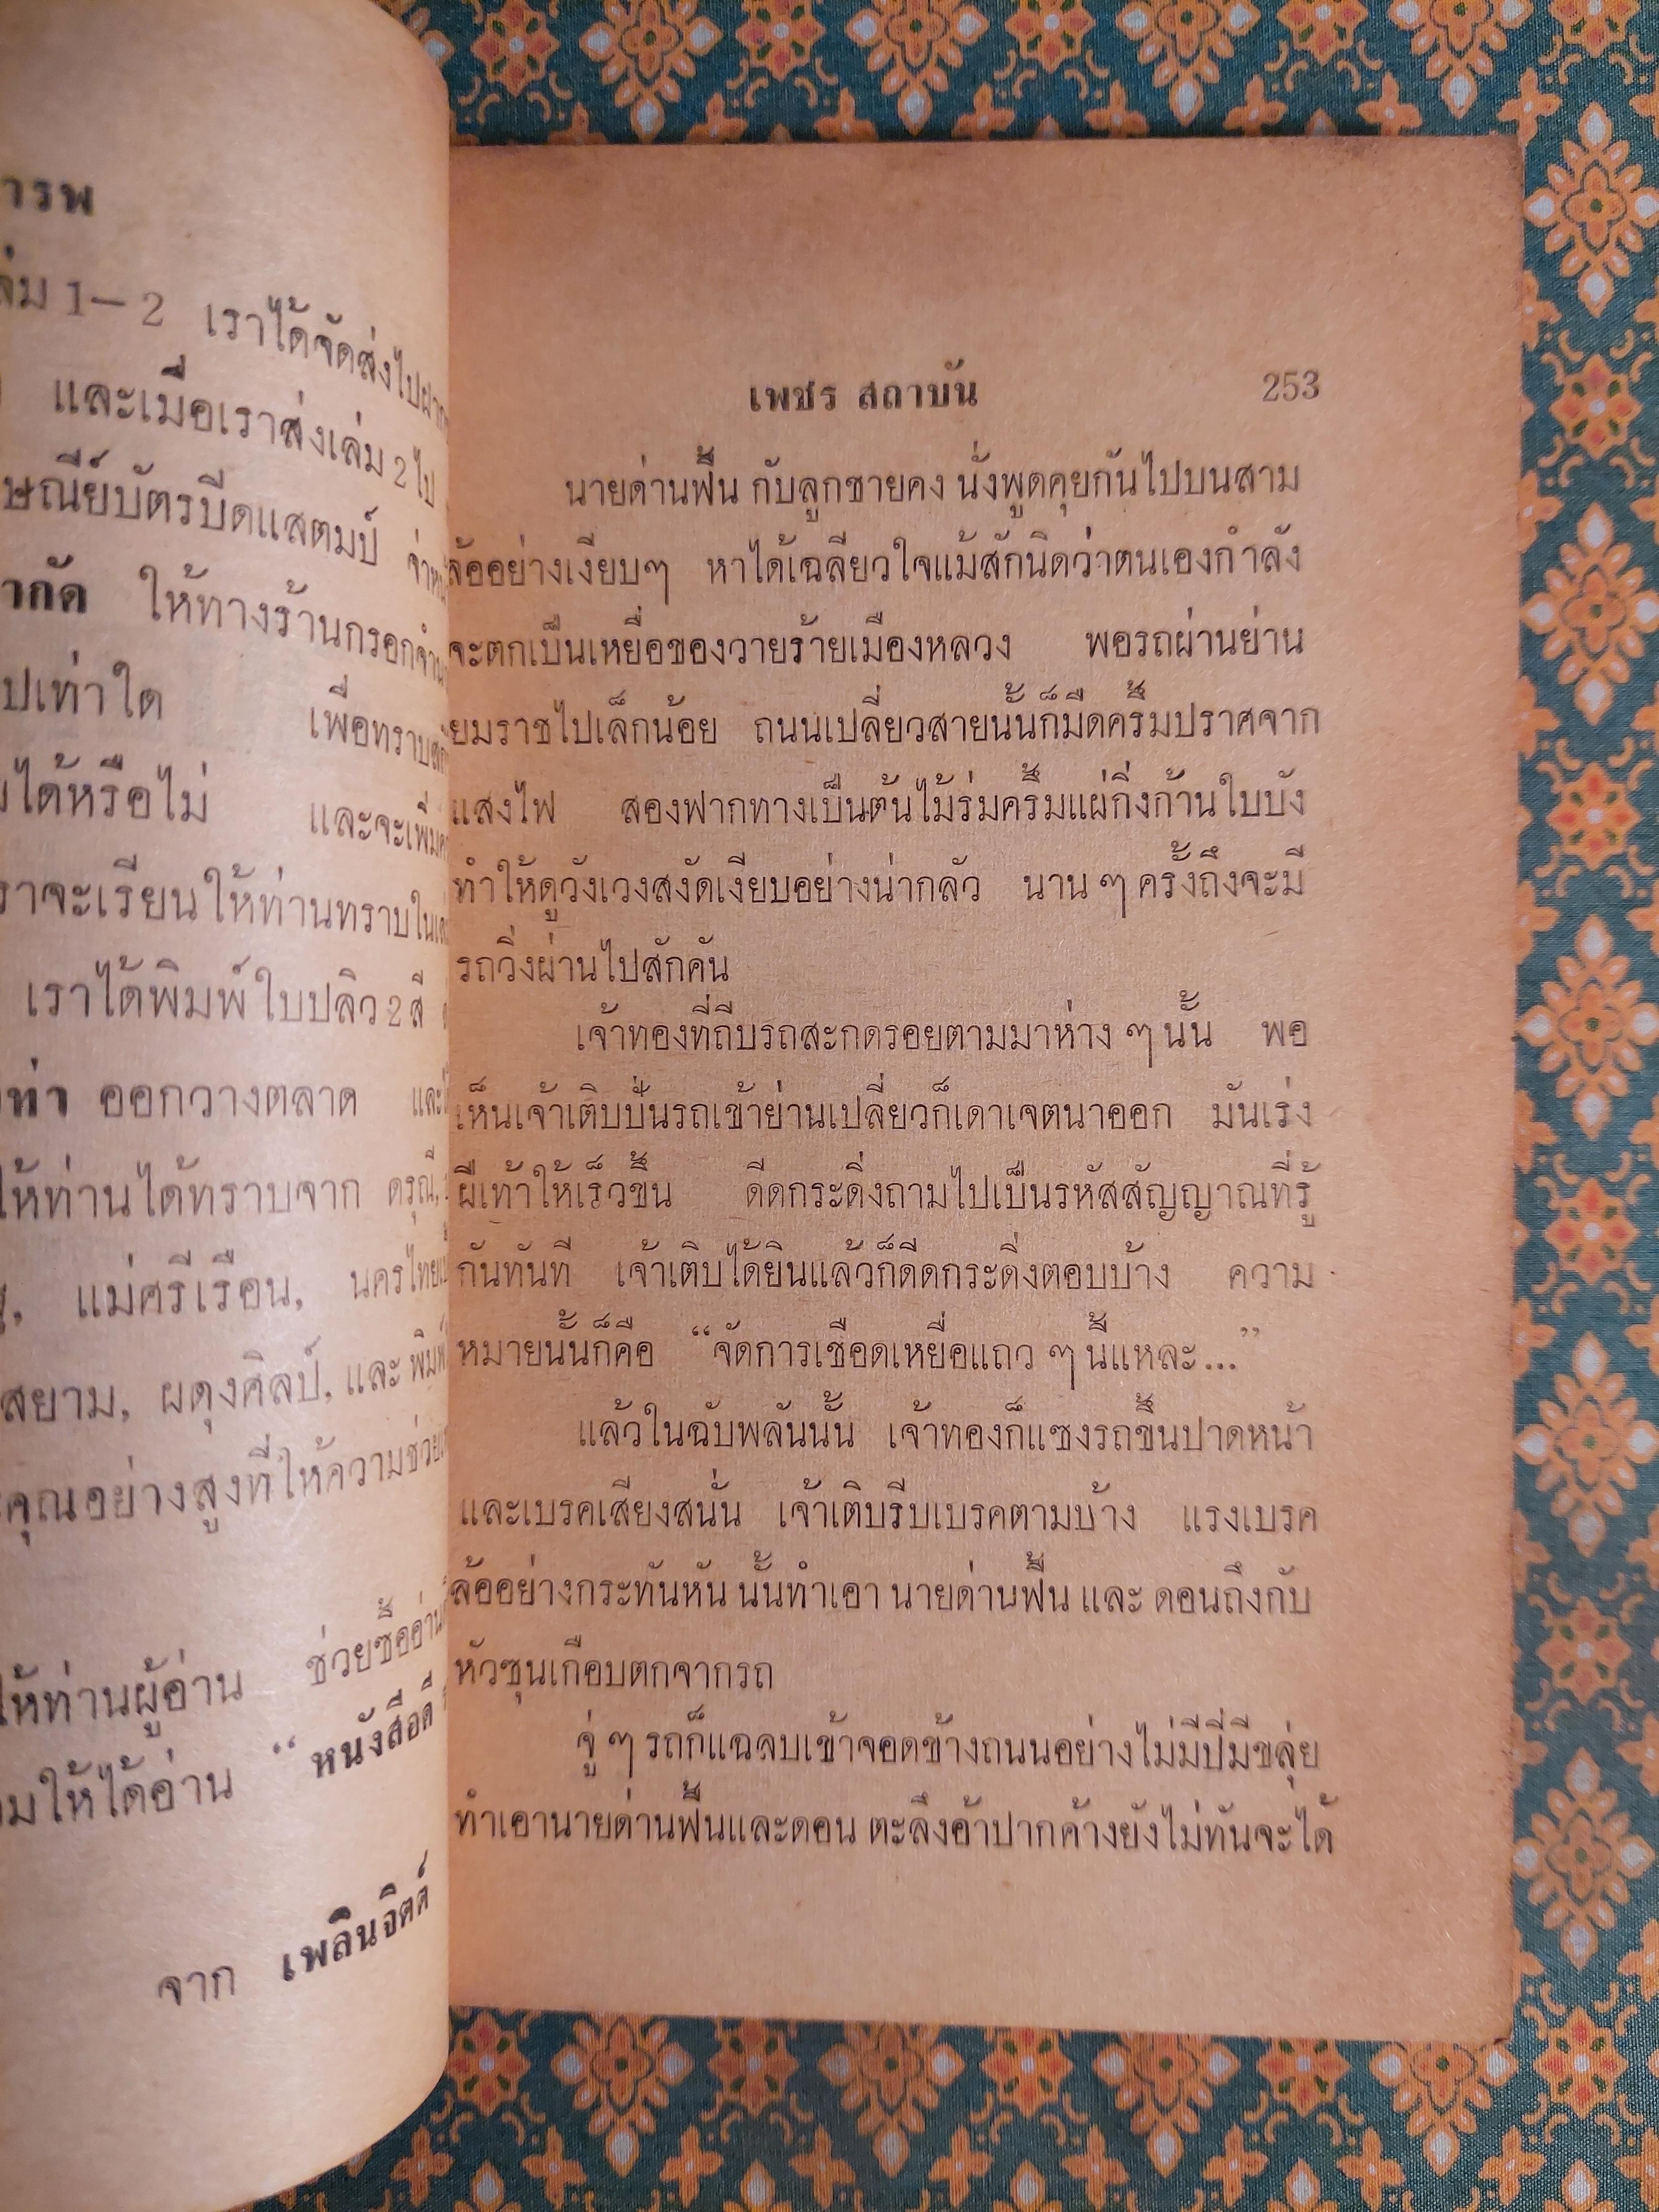 ารพ
ล่ม 1 – 2 เราได้จัดส่งไปฝาก
และเมื่อเราส่งเล่ม 2 ไป
ษณีย์บัตรปิดแสตมป์
ากัด ให้ทางร้านกรอกจำน
ปเท่าใด เพื่อทราบ
ได้หรือไม่ และจะเพิ่ม
ราจะเรียนให้ท่านทราบใน
เราได้พิมพ์ใบปลิว 2 สี
ท่า ออกวางตลาด และ
ให้ท่านได้ทราบจาก ดรุณี,
แม่ศรีเรือน, นครไทย
สยาม, ผดุงศิลป์, และ พิมพ์
คุณอย่างสูงที่ให้ความช่วย
ให้ท่านผู้อ่าน ช่วยซื้ออ่าน
มให้ได้อ่าน “ หนังสือดี
จาก เพลินจิตต์
เพชร สถาบัน 253
นายด่านฟื้น กับลูกชายคง นั่งพูดคุยกันไปบนสาม
ล้ออย่างเงียบๆ หาได้เฉลียวใจแม้สักนิดว่าตนเองกำลัง
จะตกเป็นเหยื่อของวายร้ายเมืองหลวง พอรถผ่านย่าน
ยมราชไปเล็กน้อย ถนนเปลี่ยวสายนั้นก็มืดครึ้มปราศจาก
แสงไฟ สองฟากทางเป็นต้นไม้ร่มครึ้มแผ่กิ่งก้านใบบัง
ทำให้ดูวังเวงสงัดเงียบอย่างน่ากลัว นาน ๆ ครั้งถึงจะมี
รถวิ่งผ่านไปสักคัน
เจ้าทองที่ถีบรถสะกดรอยตามมาห่าง ๆ นั้น พอ
เห็นเจ้าเติบปั่นรถเข้าย่านเปลี่ยวก็เดาเจตนาออก มันเร่ง
ฝีเท้าให้เร็วขึ้น ดีดกระดิ่งถามไปเป็นรหัสสัญญาณที่รู้
กันทันที เจ้าเติบได้ยินแล้วก็ดีดกระดิ่งตอบบ้าง ความ
หมายนั้นก็คือ “จัดการเชือดเหยื่อแถว ๆ นี้แหละ...”
แล้วในฉับพลันนั้น เจ้าทองก็แซงรถขึ้นปาดหน้า
และเบรคเสียงสนั่น เจ้าเติบรีบเบรคตามบ้าง แรงเบรค
ล้ออย่างกระทันหัน นั้นทำเอา นายด่านฟื้น และ ดอนถึงกับ
หัวซุนเกือบตกจากรถ
จู่ ๆ รถก็แฉลบเข้าจอดข้างถนนอย่างไม่มีปี่มีขลุ่ย
ทำเอานายด่านฟื้นและดอน ตะลึงอ้าปากค้างยังไม่ทันจะได้